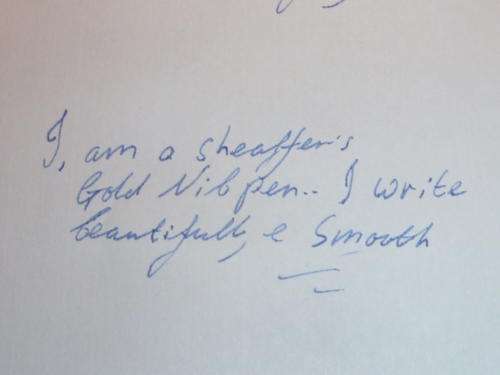 I, am a Sheaffer's
Gold Nib pen.. I write
beautifull, e Smooth